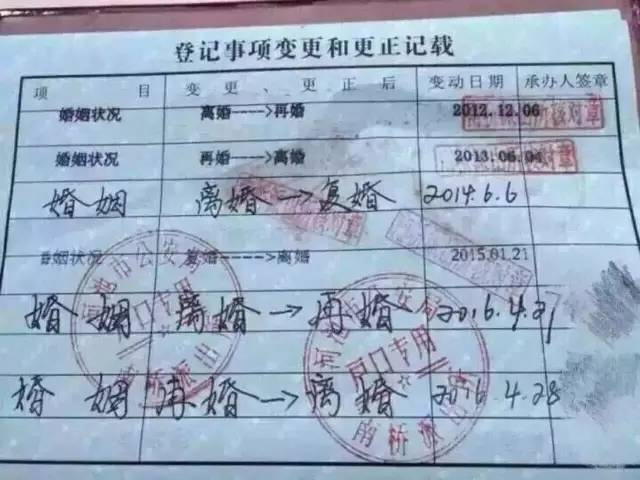 登记事项变更和更正记载
项 目 变更、更正后 变动日期 承办人签章
婚姻状况 离婚---->再婚 2012.12.06
婚姻状况 再婚---->离婚 2013.06.04
婚姻 离婚→复婚 2014.6.6
婚姻状况 复婚---->离婚 2015.01.21
婚姻 离婚→再婚 2016.4.27
婚姻 再婚→离婚 2016.4.28
市公安局
户口专用
南桥派出
公安局
户口专用
南桥派出